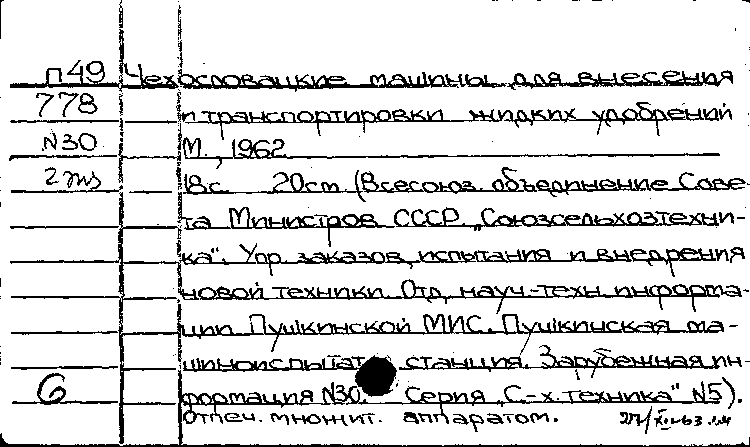 П49 Чехословацкие машины для внесения
778 и транспортировки жидких удобрений
N30 М., 1962
2 экз 18с. 20cm (Всесоюз. объединение Сове-
та Министров СССР „Союзсельхозтехни-
ка". Упр. заказов, испытания и внедрения
новой техники. Отд. науч.-техн. информа-
ции Пушкинской МИС. Пушкинская ма-
шиноиспытат. станция. Зарубежная ин-
6 формация N30. Серия „С.-х. техника" N5).
Отпеч. множит. аппаратом.